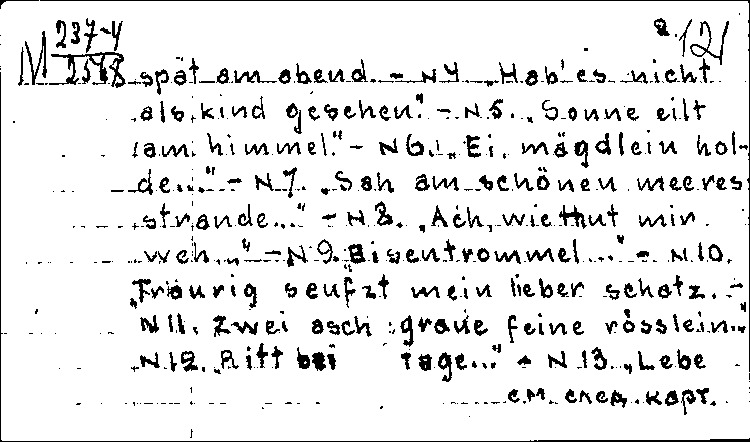 M 237-4
2578
2. 121
spät am abend. - N 4 „Hab' es nicht
als kind gesehen." - N 5. „Sonne eilt
am himmel." - N 6. „Ei, mägdlein hol-
de..." - N 7. „Sah am schönen meeres
strande..." - N 8. „Ach, wie thut mir
weh..." - N 9. „Eisentrommel..." - N 10.
„Traurig seufzt mein lieber schatz. -
N 11. Zwei asch-graue feine rösslein..."
N 12. „Ritt bei tage..." - N 13. „Lebe
см. след. карт.